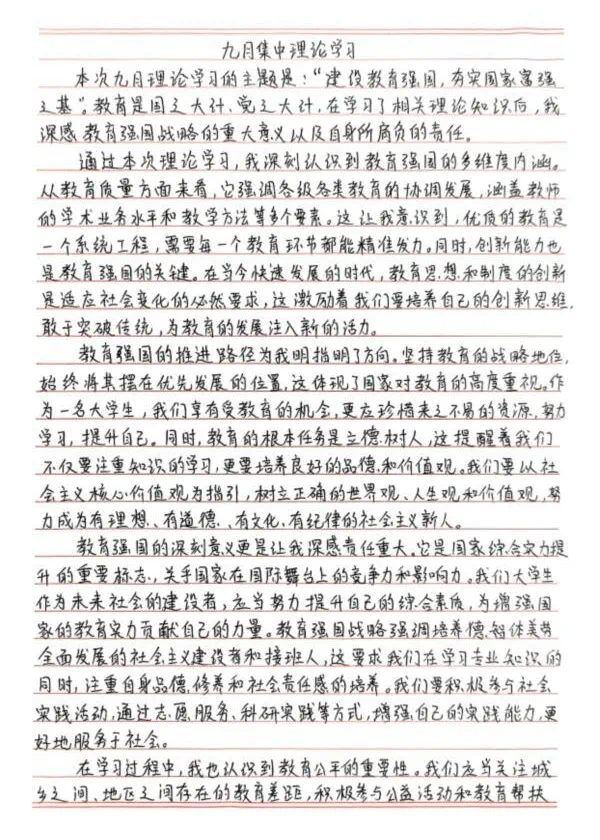 九月集中理论学习
本次九月理论学习的主题是：“建设教育强国，夯实国家富强
之基”。教育是国之大计、党之大计，在学习了相关理论知识后，我
深感教育强国战略的重大意义以及自身所肩负的责任。
通过本次理论学习，我深刻认识到教育强国的多维度内涵。
从教育质量方面来看，它强调各级各类教育的协调发展，涵盖教师
的学术业务水平和教学方法等多个要素。这让我意识到，优质的教育是
一个系统工程，需要每一个教育环节都能精准发力。同时，创新能力也
是教育强国的关键。在当今快速发展的时代，教育思想和制度的创新
是适应社会变化的必然要求，这激励着我们要培养自己的创新思维，
敢于突破传统，为教育的发展注入新的活力。
教育强国的推进路径为我明指明了方向。坚持教育的战略地位，
始终将其摆在优先发展的位置，这体现了国家对教育的高度重视。作
为一名大学生，我们享有受教育的机会，更应珍惜来之不易的资源，努力
学习，提升自己。同时，教育的根本任务是立德树人，这提醒着我们
不仅要注重知识的学习，更要培养良好的品德和价值观。我们要以社
会主义核心价值观为指引，树立正确的世界观、人生观和价值观，努
力成为有理想、有道德、有文化、有纪律的社会主义新人。
教育强国的深刻意义更是让我深感责任重大。它是国家综合实力提
升的重要标志，关乎国家在国际舞台上的竞争力和影响力。我们大学生
作为未来社会的建设者，应当努力提升自己的综合素质，为增强国
家的教育实力贡献自己的力量。教育强国战略强调培养德智体美劳
全面发展的社会主义建设者和接班人，这要求我们在学习专业知识的
同时，注重自身品德修养和社会责任感的培养。我们要积极参与社会
实践活动，通过志愿服务、科研实践等方式，增强自己的实践能力，更
好地服务于社会。
在学习过程中，我也认识到教育公平的重要性。我们应当关注城
乡之间、地区之间存在的教育差距，积极参与公益活动和教育帮扶